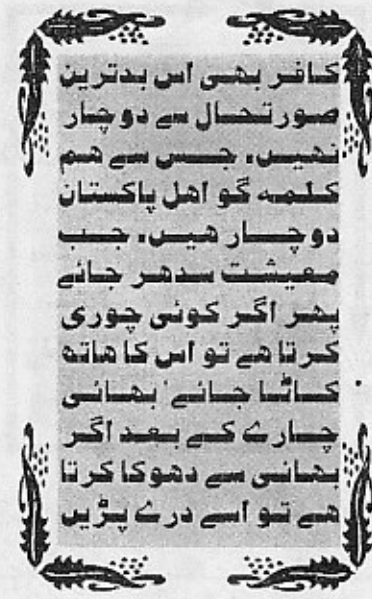 کافر بھی اس بدترین
صورتحال سے دو چار
نھیں، جس سے ھم
کلمہ گو اھل پاکستان
دوچار ھیں، جب
معیشت سدھر جائے
پھر اگر کوئی چوری
کرتا ھے تو اس کا ھاتھ
کاٹا جائے' بھائی
چارے کے بعد اگر
بھائی سے دھوکا کرتا
ھے تو اسے درے پڑیں